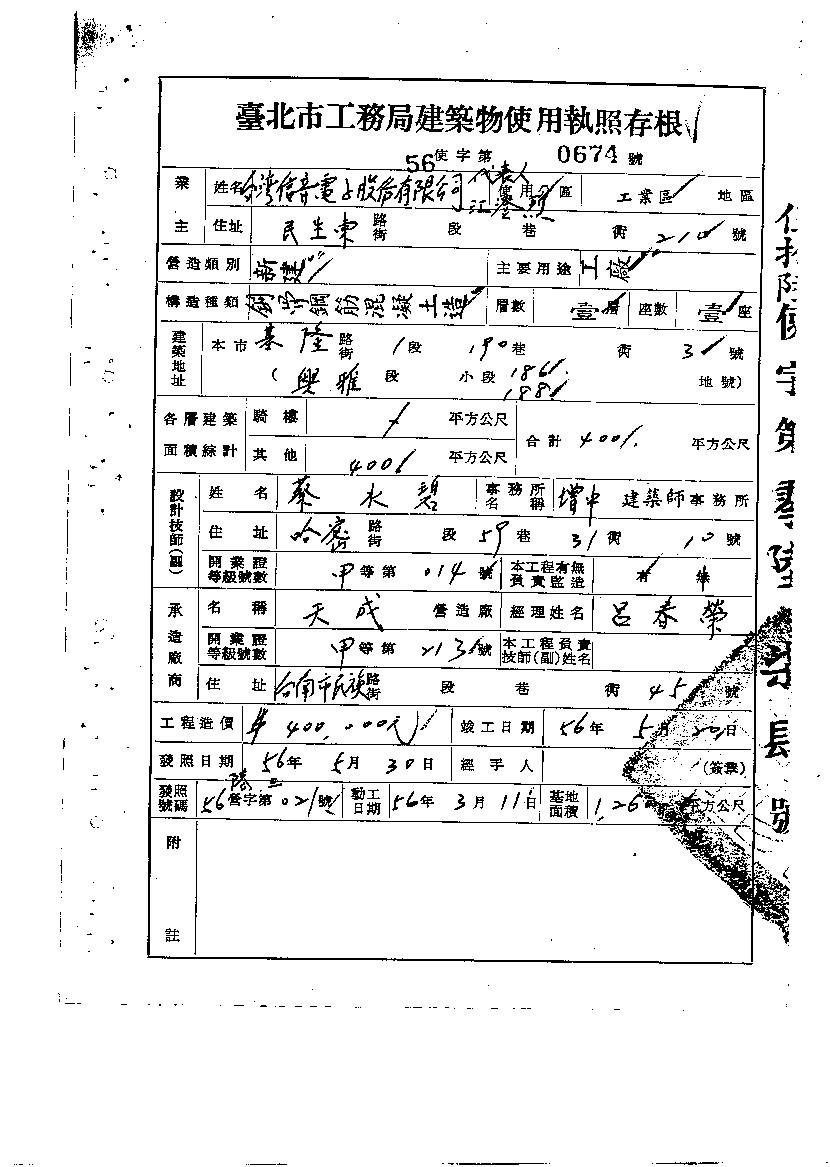 臺北市工務局建築物使用執照存根
56使字第0674號
業主 姓名 台灣信音電子股份有限公司 代表人 江 使用分區 工業區 地區
住址 民生東 路街 段 巷 衖 210 號
營造類別 新建 主要用途 工廠
構造種類 鋼骨鋼筋混凝土造 層數 壹層 座數 壹座
建築地址 本市 基隆 路街 1段 190巷 衖 3 號
(興雅 段 小段 186 188 地號)
各層建築面積綜計 騎樓 平方公尺 合計 400 平方公尺
其他 400 平方公尺
設計技師(副) 姓名 蔡水碧 事務所名稱 增中 建築師事務所
住址 哈密 路街 段 59巷 31衖 10號
開業證等級號數 甲等第014號 本工程有無負責監造 有 無
承造廠商 名稱 天成 營造廠 經理姓名 呂春榮
開業證等級號數 甲等第213號 本工程負責技師(副)姓名
住址 台南市民族 路街 段 巷 衖 45 號
工程造價 400,000元 竣工日期 56年5月20日
發照日期 56年5月30日 經手人 (簽章)
發照號碼 56營字第021號 動工日期 56年3月11日 基地面積 1,26 平方公尺
附註
使字第 號